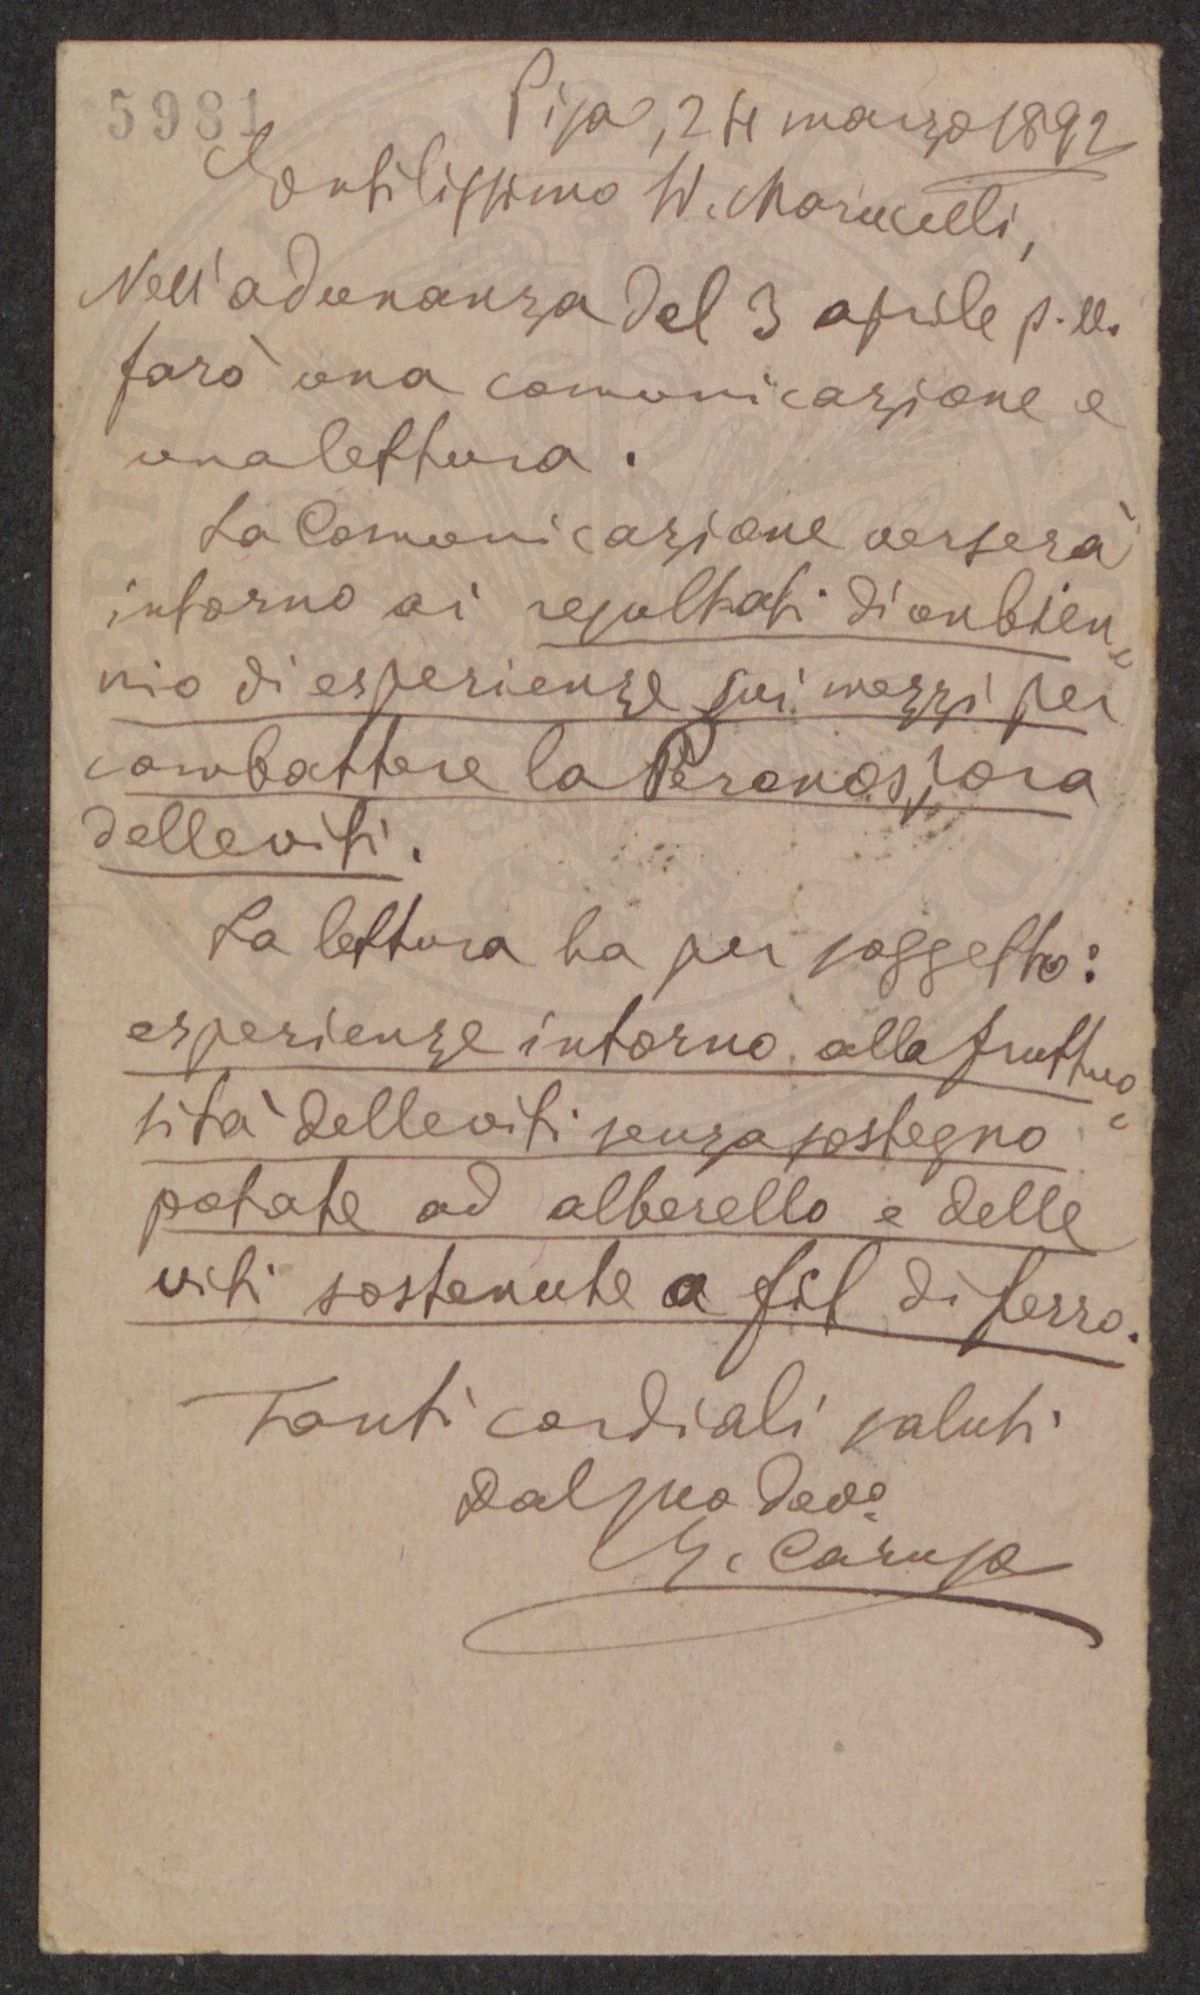 5981
Pisa, 24 marzo 1892
Gentilissimo Sr. Marucelli,
Nell'adunanza del 3 aprile p. v.
farò una comunicazione e
una lettura.
La Comunicazione verserà
intorno ai resultati di un bien=
nio di esperienze sui mezzi per
combattere la Peronospora
delle viti.
La lettura ha per soggetto:
esperienze intorno alla fruttuo=
sità delle viti senza sostegno
potate ad alberello e delle
viti sostenute a fil di ferro.
Tanti cordiali saluti
Dal suo devo.
G. Caruso